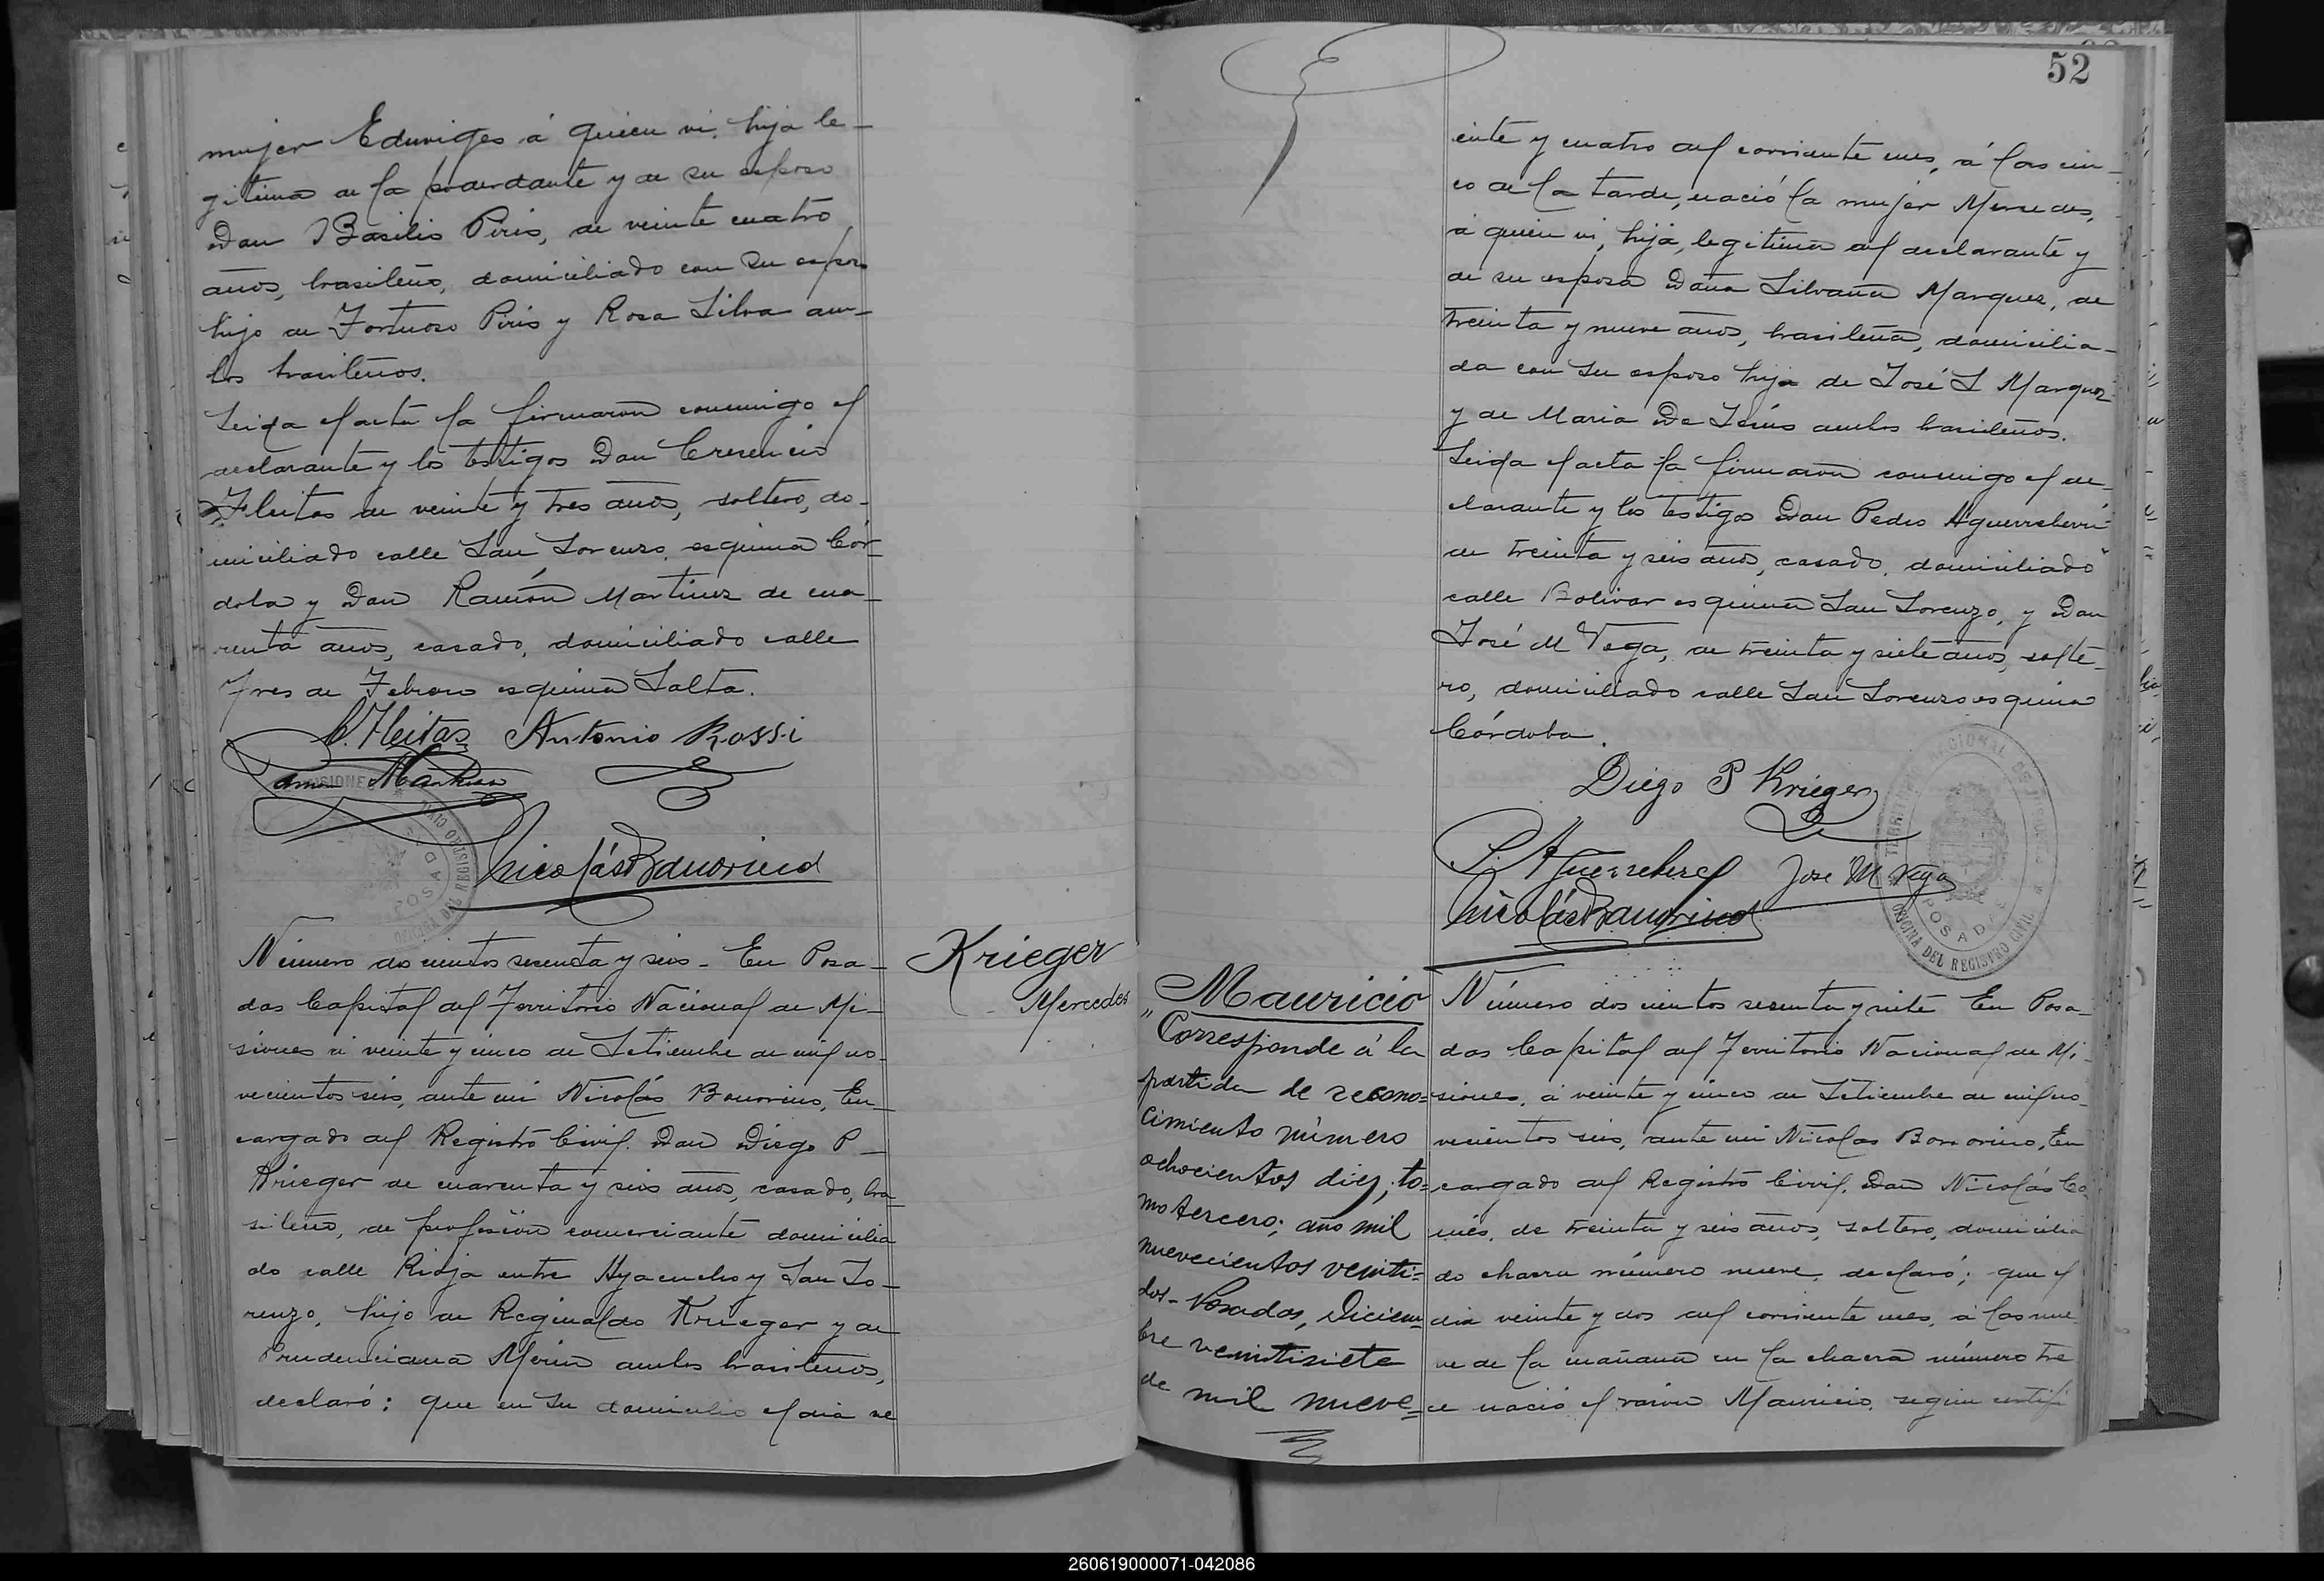 mujer Eduviges á quien vi, hija le-
gitima de la poderdante y de su esposo
Don Basilio Piris, de veinte cuatro
años, brasilero, domiciliado con su esposa
hijo de Fortuoso Piris y Rosa Silva am-
bos brasileros.
Leida el acta la firmaron conmigo el
declarante y los testigos Don Cresencio
Fleitas de veinte y tres años, soltero, do-
miciliado calle San Lorenzo esquina Cór-
doba y Don Ramón Martinez de cua-
renta años, casado, domiciliado calle
Tres de Febrero esquina Salta.
C. Fleitas Antonio Rossi
Ramon Martinez
MISIONES
OFICINA DEL REGISTRO CIVIL
POSADAS
Nicolás Bonorino
Número doscientos sesenta y seis - En Posa-
das Capital del Territorio Nacional de Mi-
siones á veinte y cinco de Setiembre de mil no-
vecientos seis, ante mi Nicolás Bonorino, En-
cargado del Registro Civil. Don Diego P
Krieger de cuarenta y seis años, casado, bra-
silero, de profesión comerciante domicilia
do calle Rioja entre Ayacucho y San Lo-
renzo, hijo de Reginaldo Krieger y de
Prudenciana Morin ambos brasileros,
declaró: que en su domicilio el dia ve
Krieger
Mercedes
52
einte y cuatro del corriente mes, á las cin-
co de la tarde, nació la mujer Mercedes,
á quien vi, hija legitima del declarante y
de su esposa Doña Silvana Marquez, de
treinta y nueve años, brasilera, domicilia-
da con su esposo hija de José S Marquez
y de Maria De Jesús ambos brasileros.
Leida el acta la firmaron conmigo el de-
clarante y los testigos Don Pedro Aguerreberri
de treinta y seis años, casado, domiciliado
calle Bolivar esquina San Lorenzo, y Don
José M Vega, de treinta y siete años, solte-
ro, domiciliado calle San Lorenzo esquina
Córdoba.
Diego P Krieger
P. Aguerrebere José M Vega
Nicolás Bonorino
TERRITORIO NACIONAL DE MISIONES
OFICINA DEL REGISTRO CIVIL
POSADAS
Mauricio
"Corresponde á la
partida de recono=
cimiento número
ochocientos diez, to=
mo tercero; año mil
nuevecientos veinti=
dos - Posadas, Diciem=
bre veintisiete
de mil nueve=
Número dos cientos sesenta y siete En Posa-
das Capital del Territorio Nacional de Mi-
siones, á veinte y cinco de Setiembre de mil no-
vecientos seis, ante mi Nicolas Bonorino, En
cargado del Registro Civil. Don Nicolás
de treinta y seis años, soltero, domicilia
do chacra número nueve, declaró; que el
dia veinte y dos del corriente mes, á las nue
ve de la mañana en la chacra número tre
ce nació el varón Mauricio, segun certifi
260619000071-042086